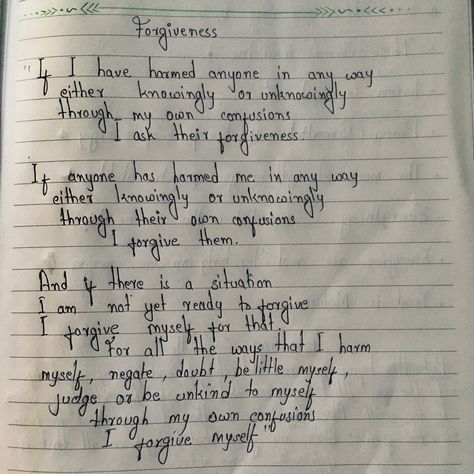 Forgiveness
"If I have harmed anyone in any way
either knowingly or unknowingly
through my own confusions
I ask their forgiveness.
If anyone has harmed me in any way
either knowingly or unknowingly
through their own confusions
I forgive them.
And if there is a situation
I am not yet ready to forgive
I forgive myself for that.
For all the ways that I harm
myself, negate, doubt, be little myself,
judge or be unkind to myself
through my own confusions
I forgive myself"